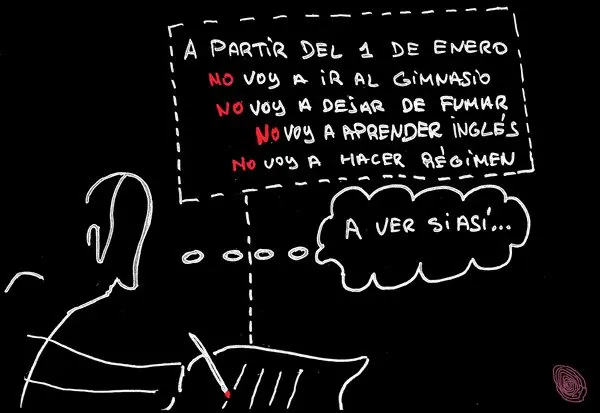 A PARTIR DEL 1 DE ENERO
NO VOY A IR AL GIMNASIO
NO VOY A DEJAR DE FUMAR
NO VOY A APRENDER INGLÉS
NO VOY A HACER RÉGIMEN
A VER SI ASÍ...